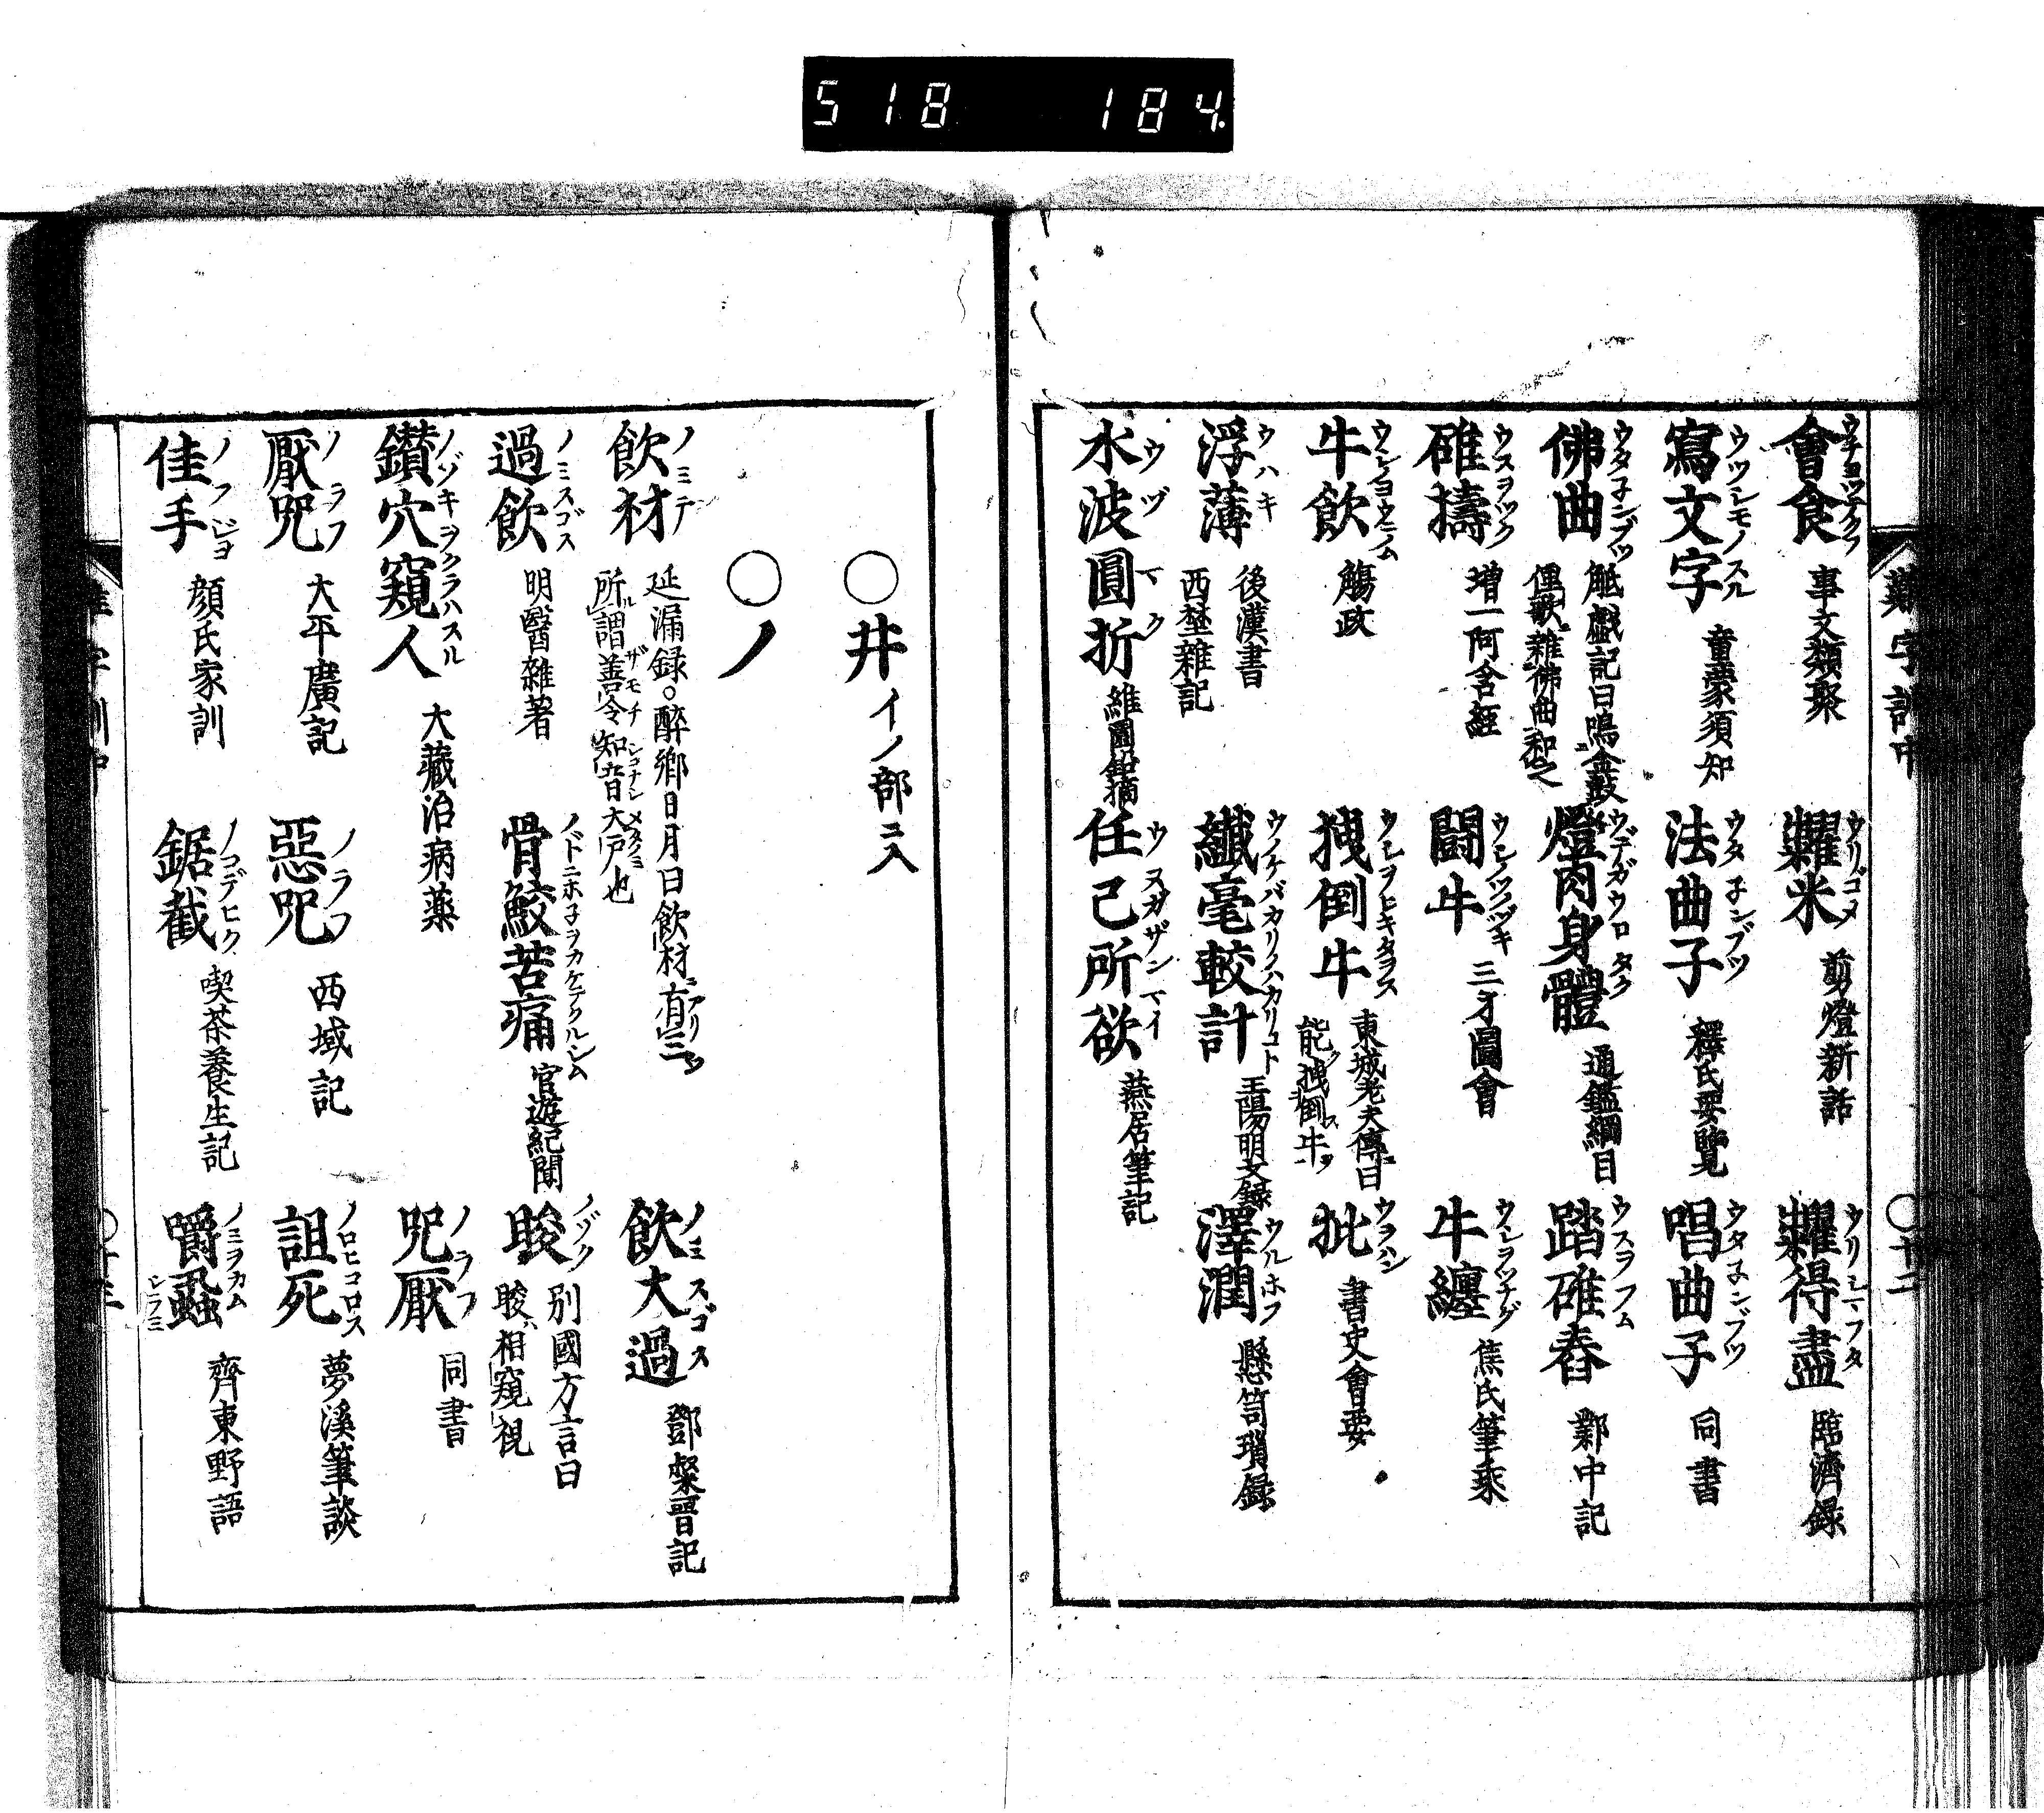 518 184
難字訓中
會食 ウチヨツテクフ 事文類聚 糶米 ウリゴメ 剪燈新話 糶得盡 ウリシマフタ 臨濟録
寫文字 ウツシモノスル 童蒙須知 法曲子 ウタ子ンブツ 釋氏要覽 唱曲子 ウタ子ンブツ 同書
佛曲 ウタ子ンブツ 觝戲記曰鳴金鼓俚歌雜佛曲和之 燈肉身體 通鑑綱目 踏碓舂 ウスヲフム 鄴中記
碓擣 ウスヲツク 増一阿含經 鬪牛 ウシノツクヅキ 三才圖會 牛纏 ウシヲツナグ 焦氏筆乘
牛飲 觴政 拽倒牛 ウシヲヒキタヲス 東城老夫傳曰能拽倒牛 批 ウラハン 書史會要
浮薄 ウハキ 後漢書 西堂雜記 纖毫較計 ウノケバカリノハカリコト 王陽明文録 澤潤 ウルホフ 懸笥瑣録
水波圓折 ウヅマク 維園鉛摘 任己所欲 燕居筆記
〇十二
〇井 イノ部ニ入
〇ノ
飲材 ノミテ 延漏録。醉鄉日月曰飲材有三所謂善令知音大戸也 飲大過 ノミスゴス 鄧粲晉記
過飲 ノミスゴス 明醫雜著 骨鮫苦痛 ノドニホ子ヲカケテクルシム 官遊紀聞 䀹 ノゾク 別國方言曰䀹ハ相窺視
鑚穴窺人 ノゾキヲクラハスル 大藏治病藥 咒厭 ノラフ 同書
厭咒 ノラフ 大平廣記 惡咒 ノラフ 西域記 詛死 ノロヒコロス 夢溪筆談
佳手 顔氏家訓 鋸截 ノコデヒク 喫茶養生記 嚼蝨 ノミヲカム シラミ 齊東野語